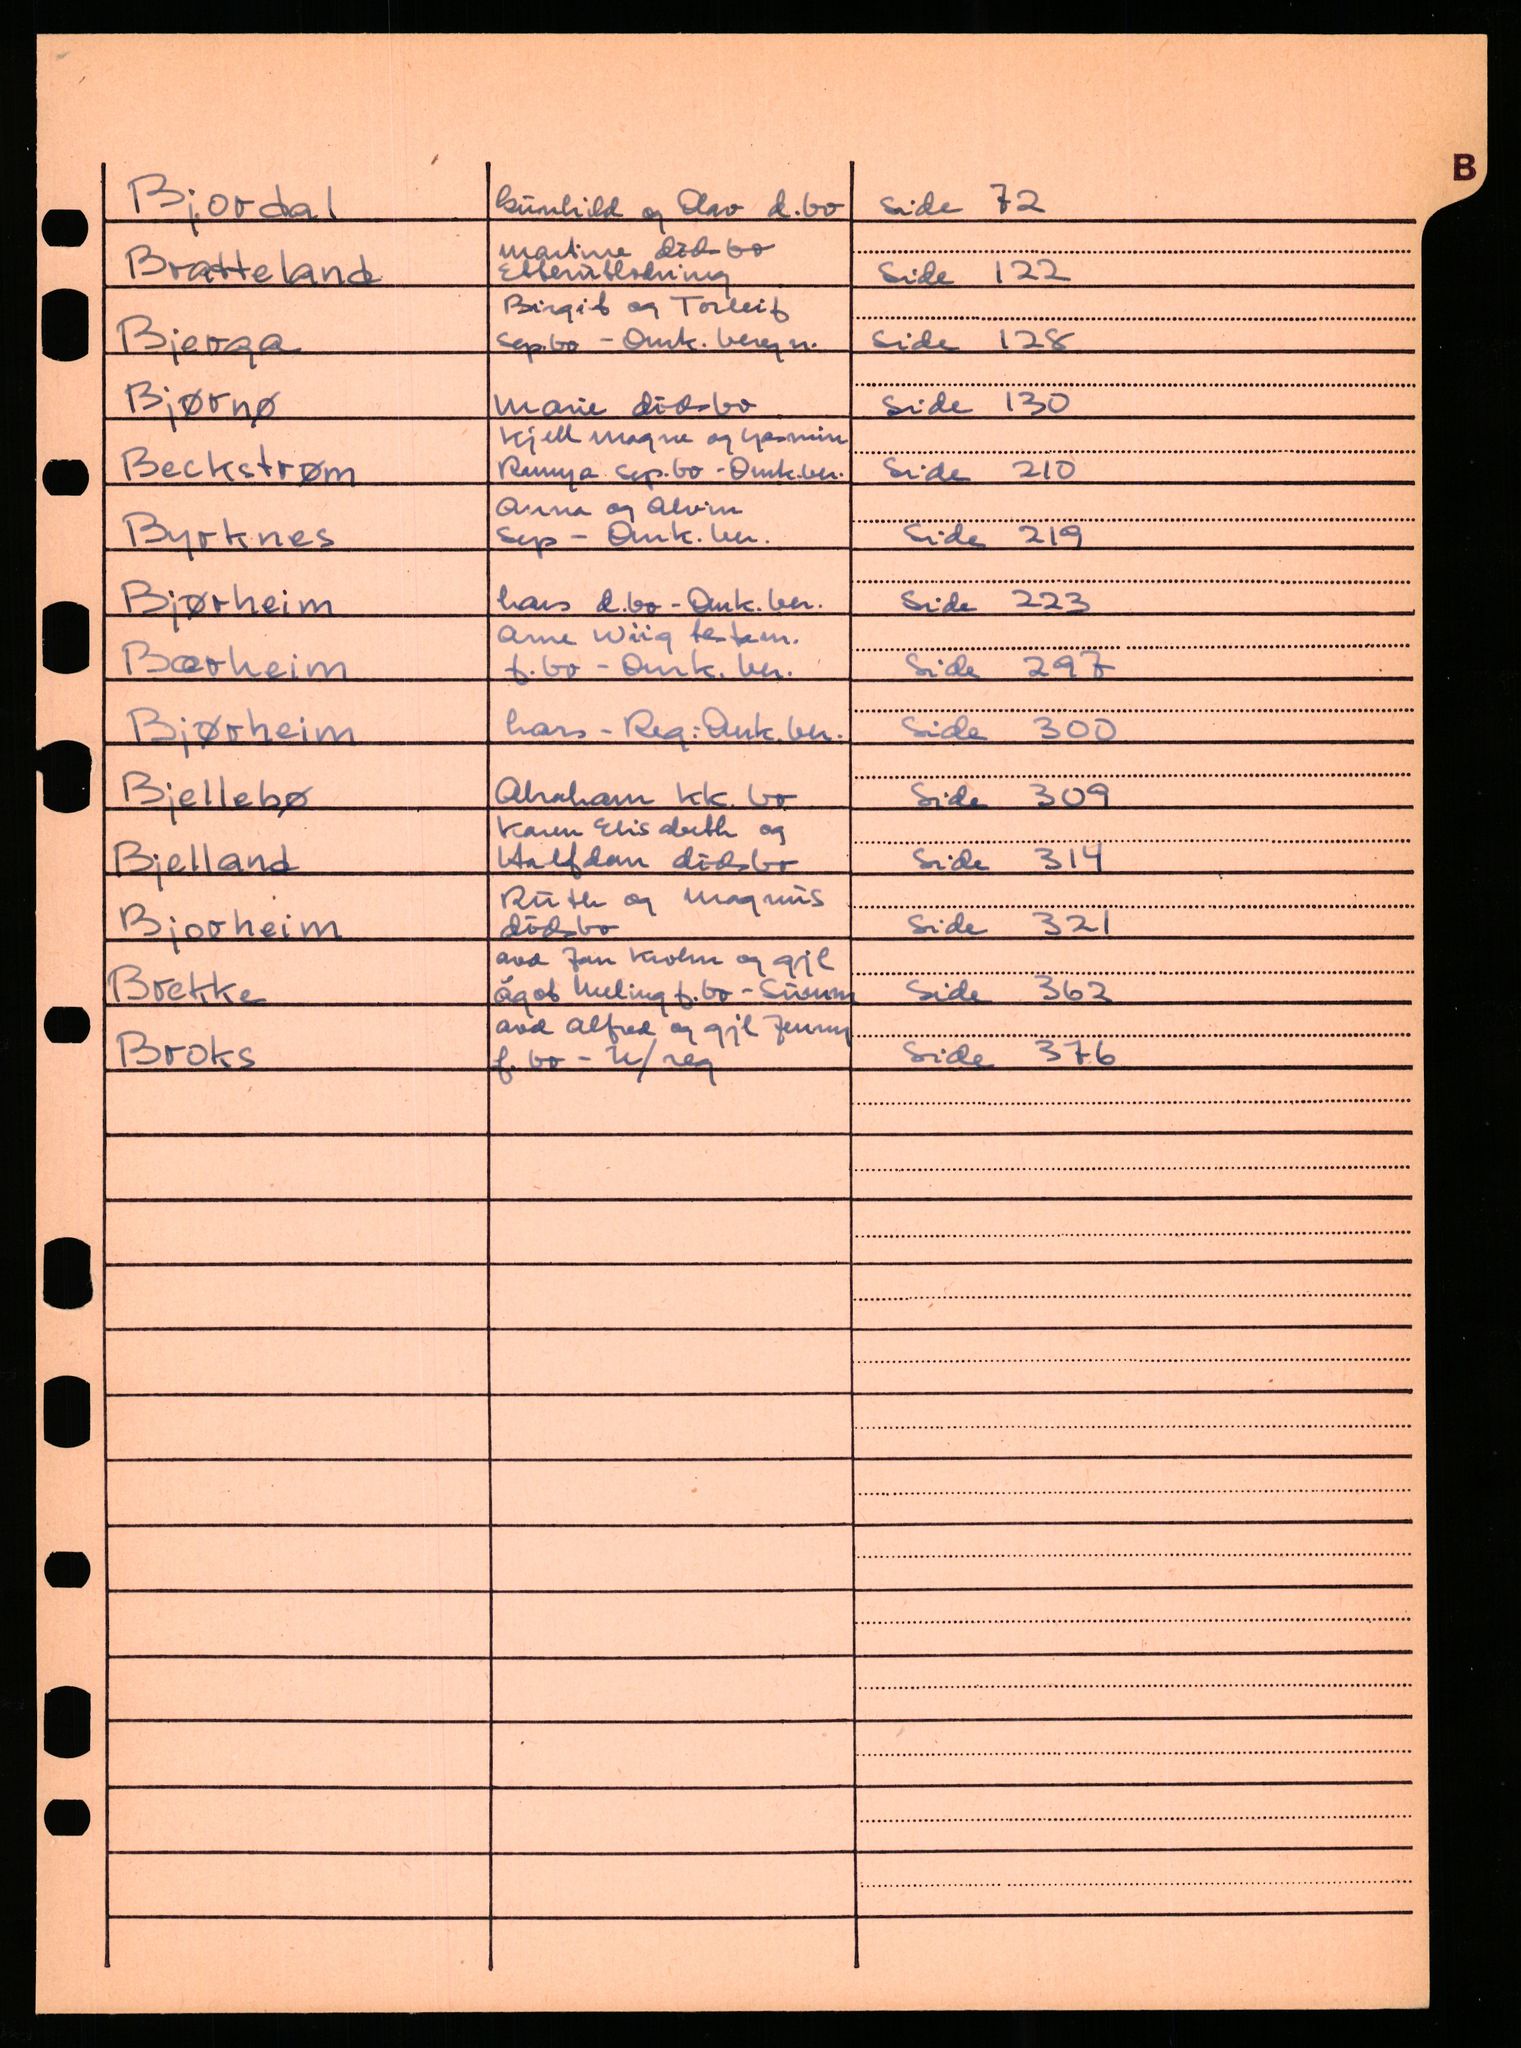 B
Bjordal Gunhild og Olav d.bo Side 72
Martine dødsbo
Bratteland Etterutlodning Side 122
Birgit og Torleif
Bjerga Sep.bo - Omk. beregn. Side 128
Bjørnø Marie dødsbo Side 130
Kjell Magne og Yasmin
Beckstrøm Sep.bo - Omk.ber. Side 210
Anna og Alvin
Byrknes Sep - Omk. ber. Side 219
Bjørheim Lars d.bo - Omk. ber. Side 223
Arne Wiig testam.
Bærheim f.bo - Omk. ber. Side 297
Bjørheim Lars - Reg: Omk. ber. Side 300
Bjellebø Abraham kk. bo Side 309
Karen Elisabeth og
Bjelland Halfdan dødsbo Side 314
Ruth og Magnus
Bjorheim dødsbo Side 321
avd Jan Krohn og gjl
Brekke Ågot Meling f.bo - Side 363
avd Alfred og gjl Jenny
Broks f.bo - U/reg Side 376